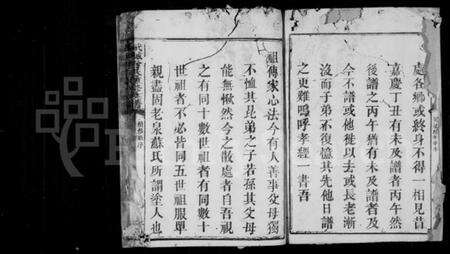 處各鄉或終身不得一相見昔
嘉慶丁丑有未及譜者丙午然
後譜之丙午猶有未及譜者及
今不譜或他徙以去或長老漸
沒而子弟不復憶其先他日譜
之更難嗚呼孝經一書吾
祖傳家心法今有人善事父母獨
不恤其昆弟之子若孫其父母
能無愀然今之散處者自吾視
之有同十數世祖者有同數十
世祖者不必皆同五世祖服單
親盡固老泉蘇氏所謂塗人也